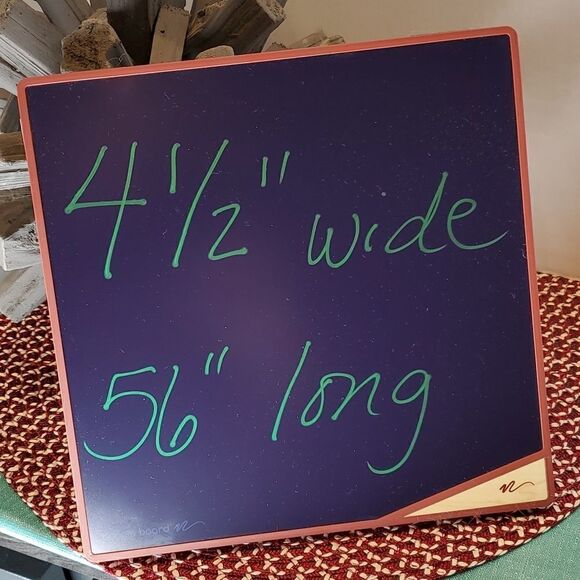 4 1/2" wide
56" long
board